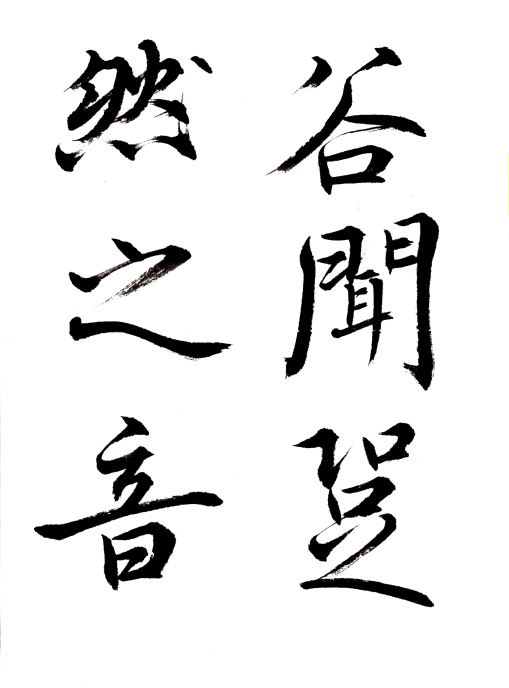 谷聞跫
然之音